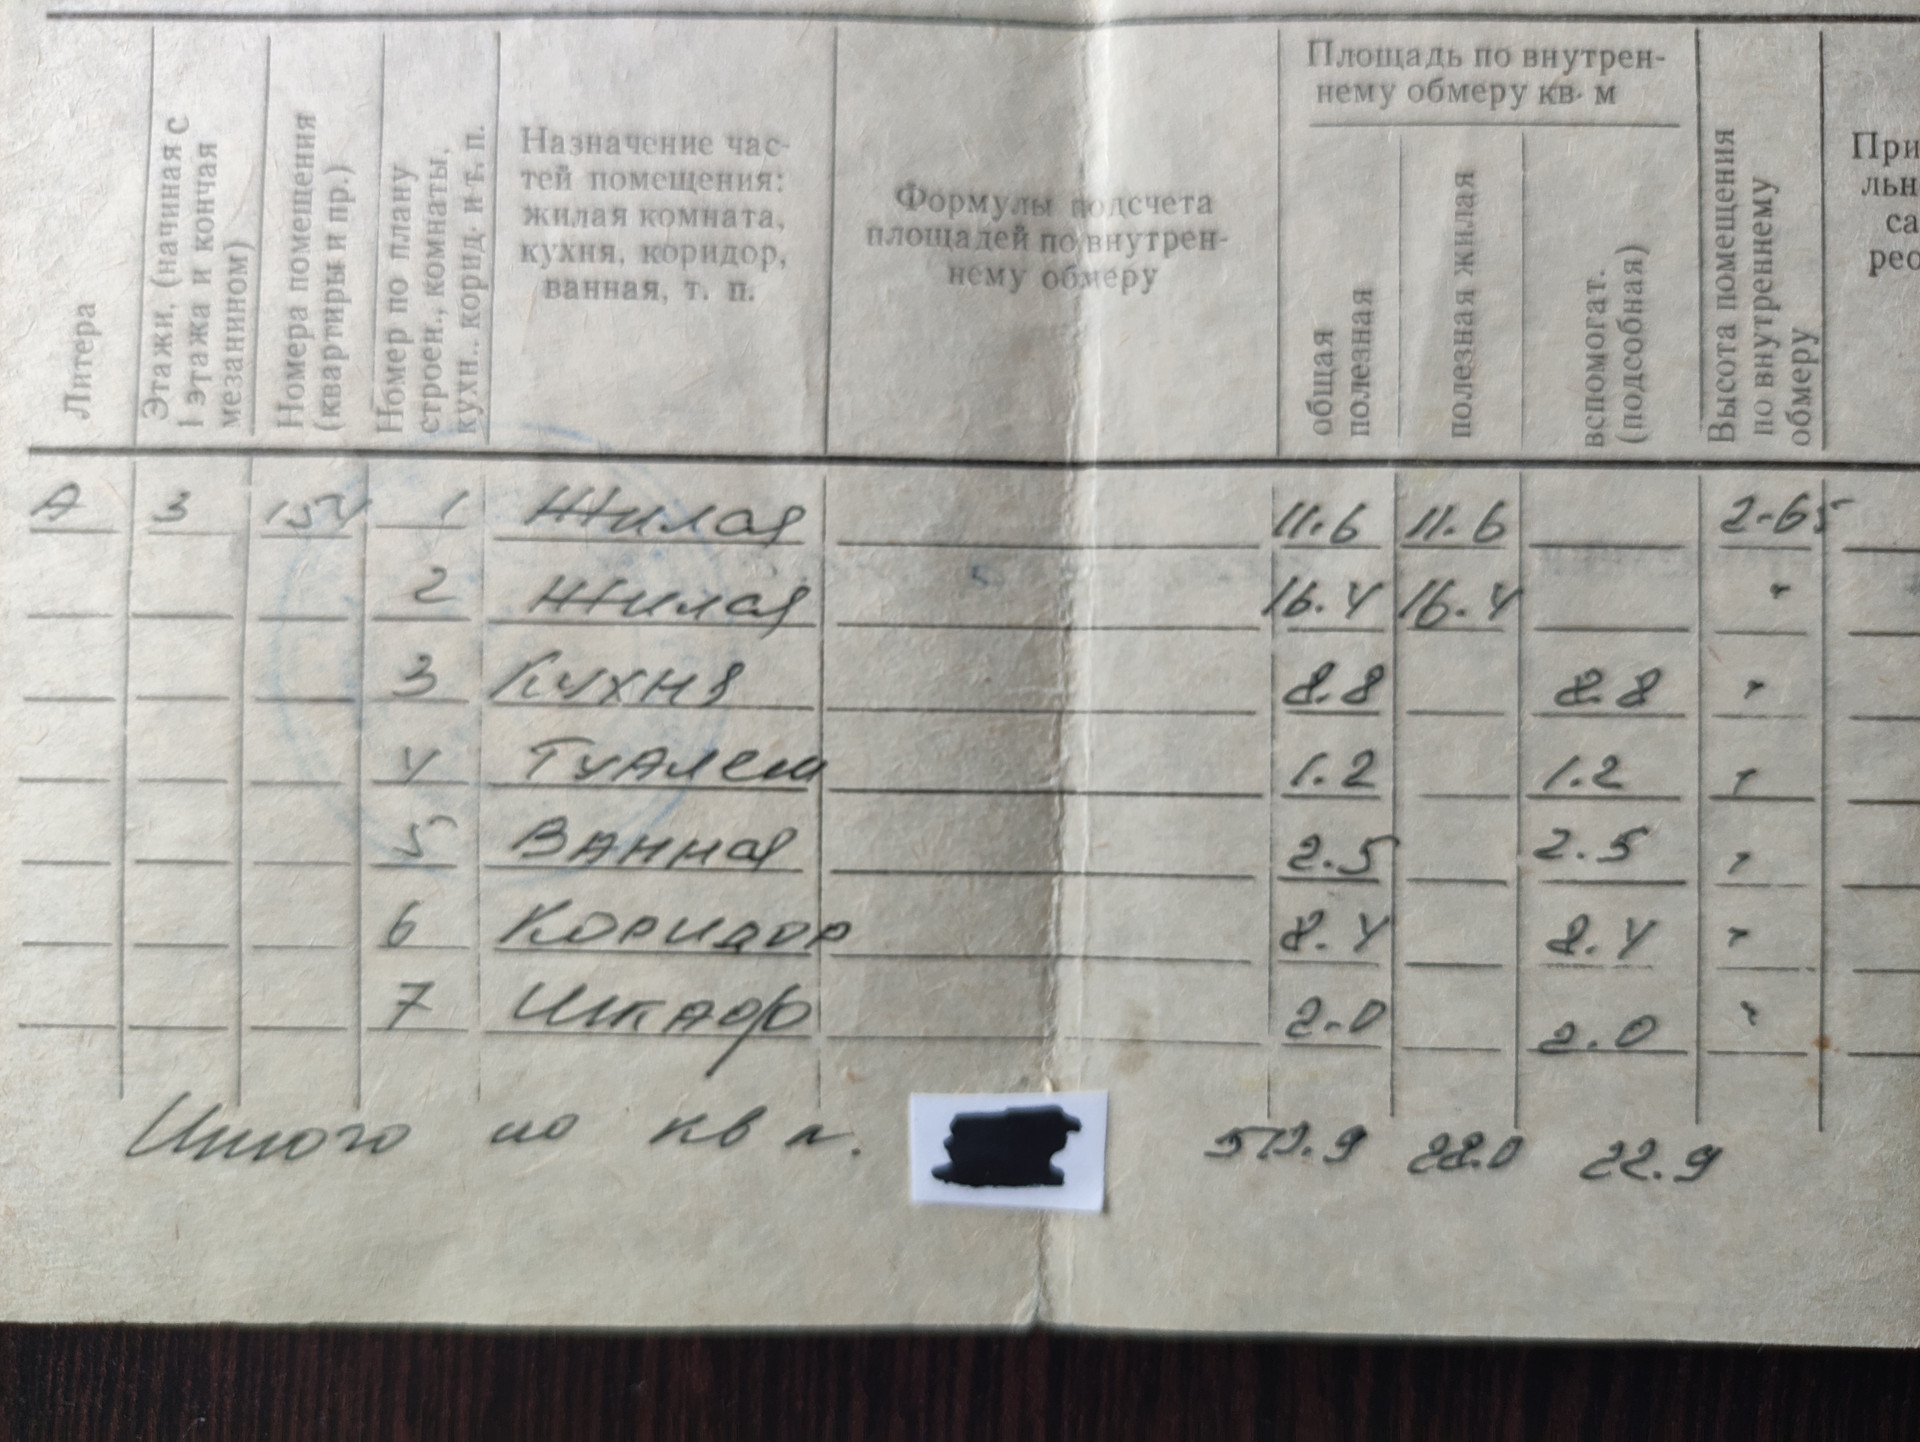 Литера
Этажи, (начиная с
1 этажа и кончая
мезанином)
Номера помещения
(квартиры и пр.)
Номер по плану
строен., комнаты,
кухн.. корид. и т. п.
Назначение час-
тей помещения:
жилая комната,
кухня, коридор,
ванная, т. п.
Формулы подсчета
площадей по внутрен-
нему обмеру
Площадь по внутрен-
нему обмеру кв. м
общая
полезная
полезная жилая
вспомогат.
(подсобная)
Высота помещения
по внутреннему
обмеру
При
льн
са
рео
А 3 154 1 Жилая 11.6 11.6 2.65
2 Жилая 16.4 16.4 "
3 Кухня 8.8 8.8 "
4 Туалет 1.2 1.2 "
5 Ванная 2.5 2.5 "
6 Коридор 8.4 8.4 "
7 Шкаф 2.0 2.0 "
Итого по кв 28.0 22.9